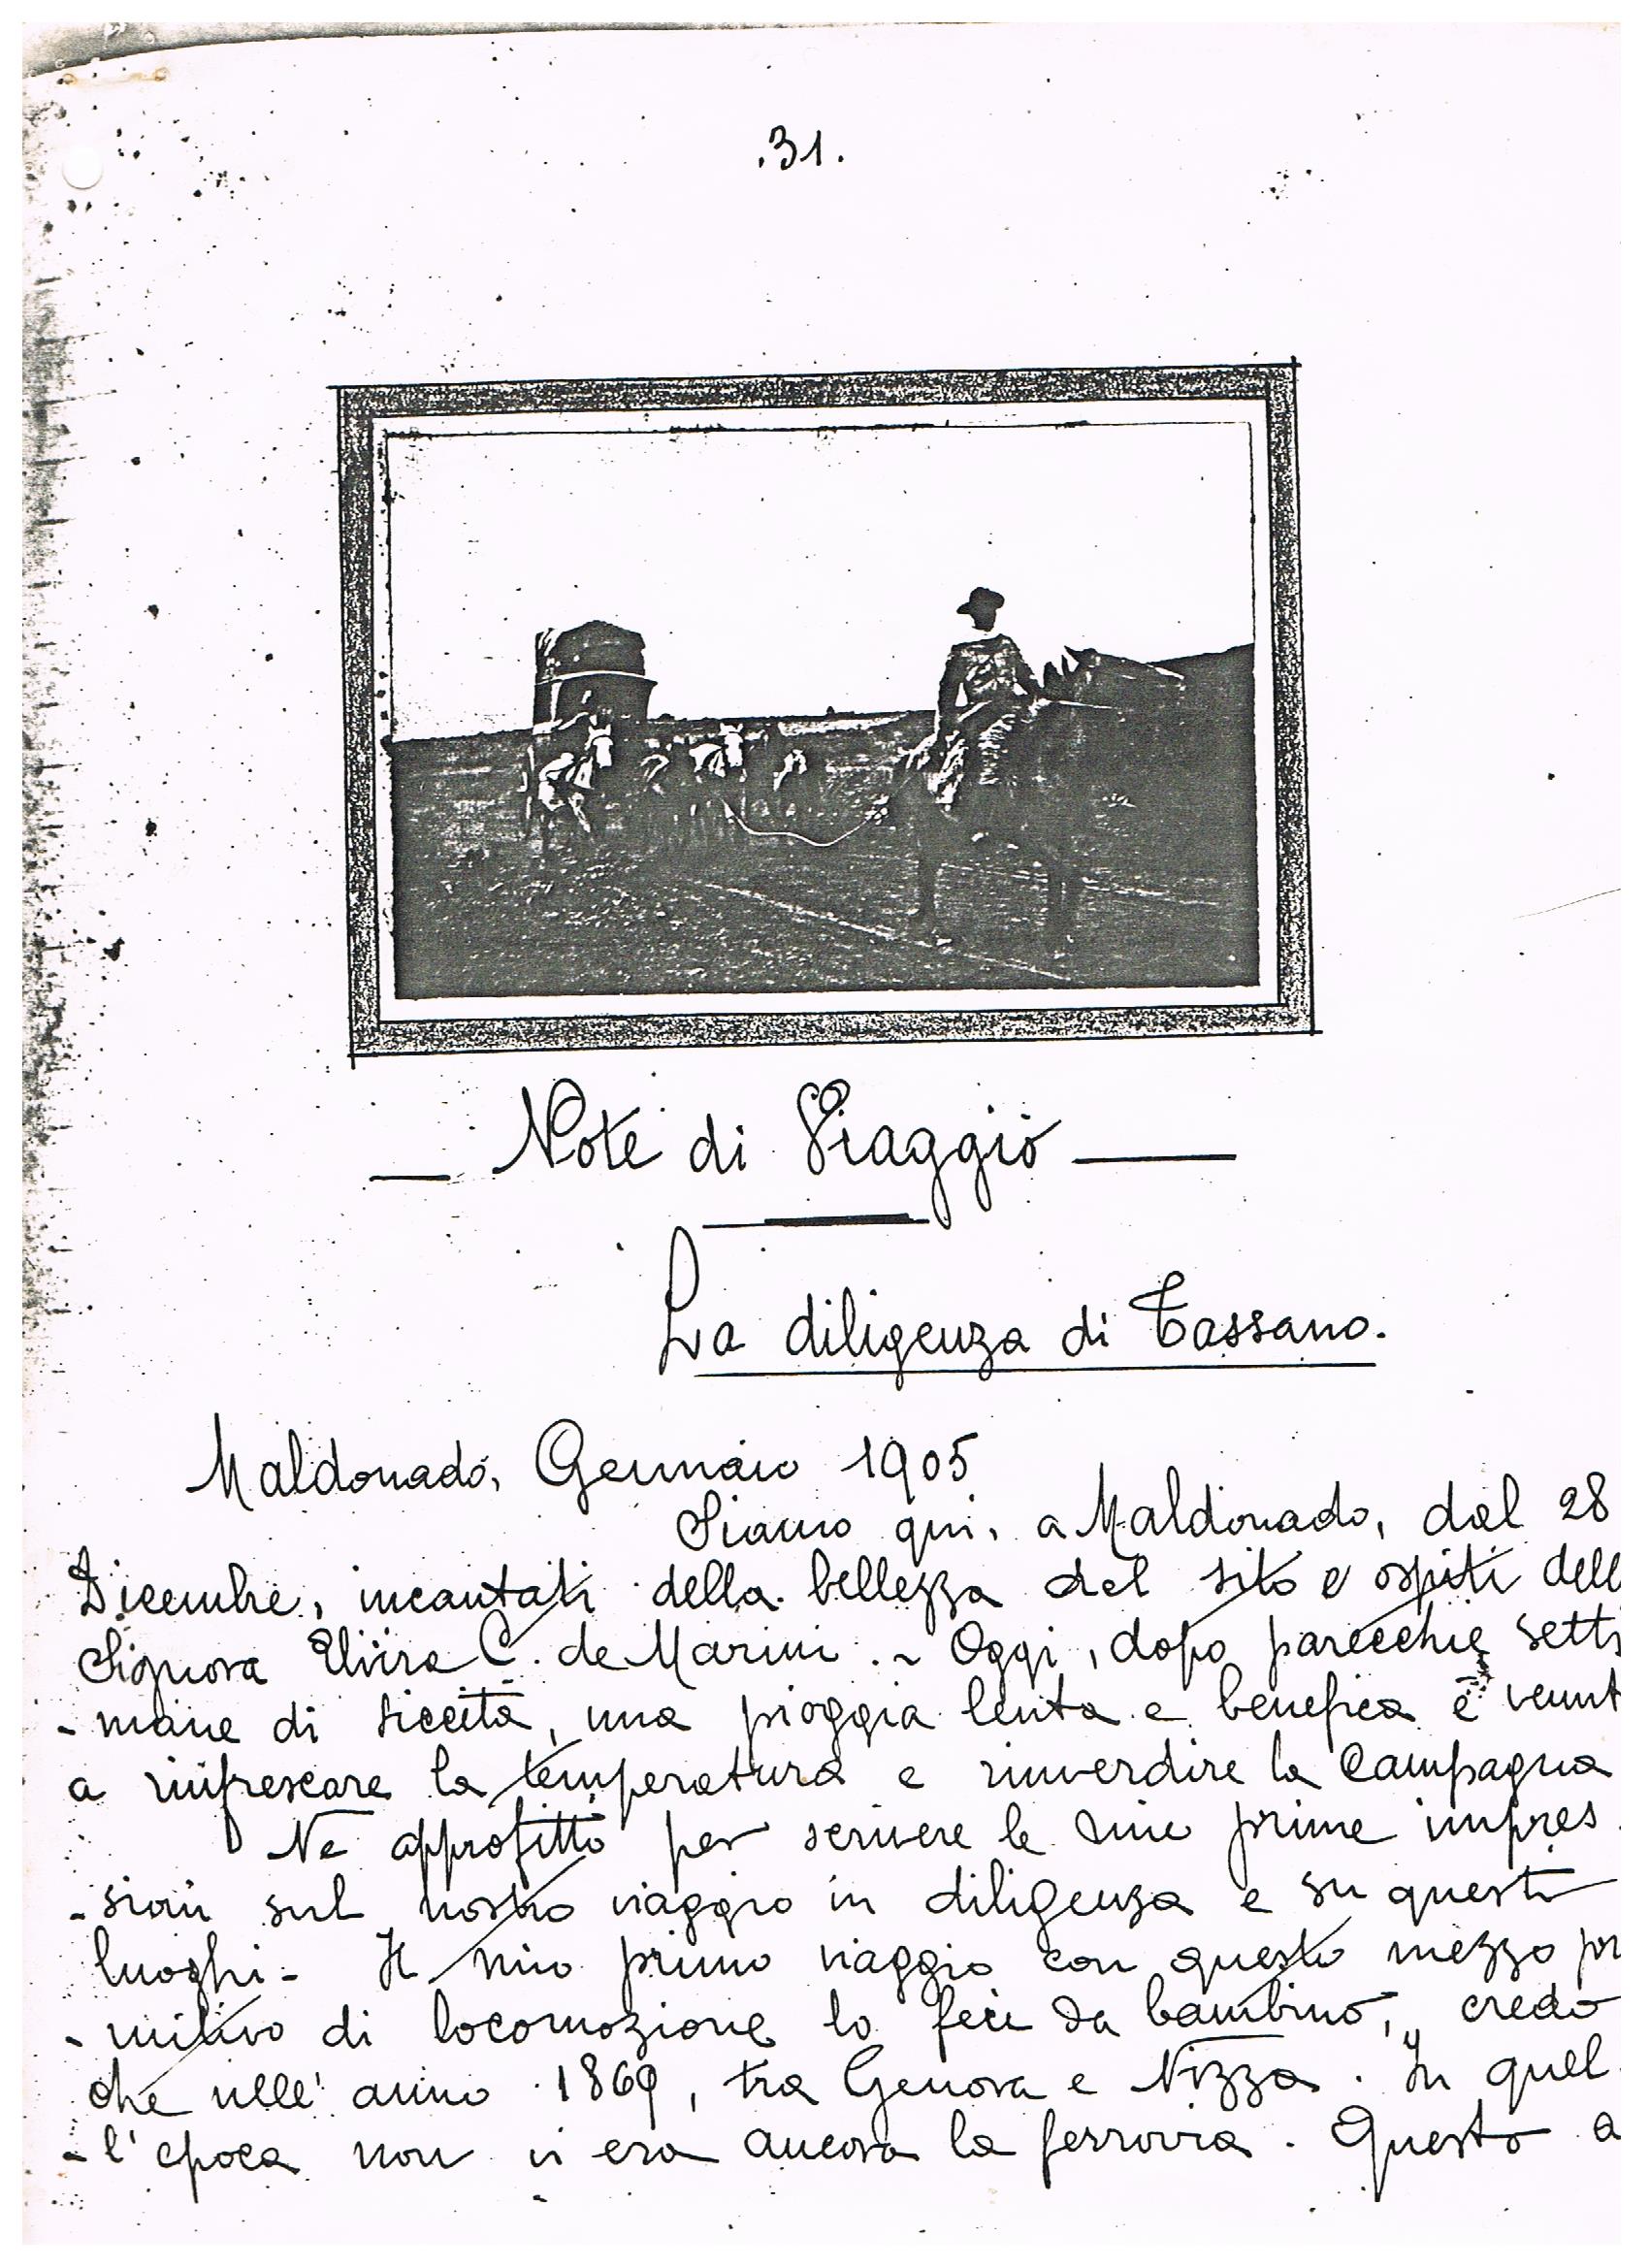 .31.
Note di Viaggio
La diligenza di Tassano.
Maldonado, Gennaio 1905
Siamo qui, a Maldonado, dal 28
Dicembre, incantati della bellezza del sito e ospiti dell
Signora Elvira C. de Marini. - Oggi, dopo parecchie setti
- mane di siccità, una pioggia lenta e benefica è venut
a rinfrescare la temperatura e rinverdire la campagna
Ne approfitto per scrivere le mie prime impres
- sioni sul nostro viaggio in diligenza e su questi
luoghi - Il mio primo viaggio con questo mezzo pri
- mitivo di locomozione lo feci da bambino, credo
che nell'anno 1869, tra Genova e Nizza. In quel
- l'epoca non vi era ancora la ferrovia. Questo a